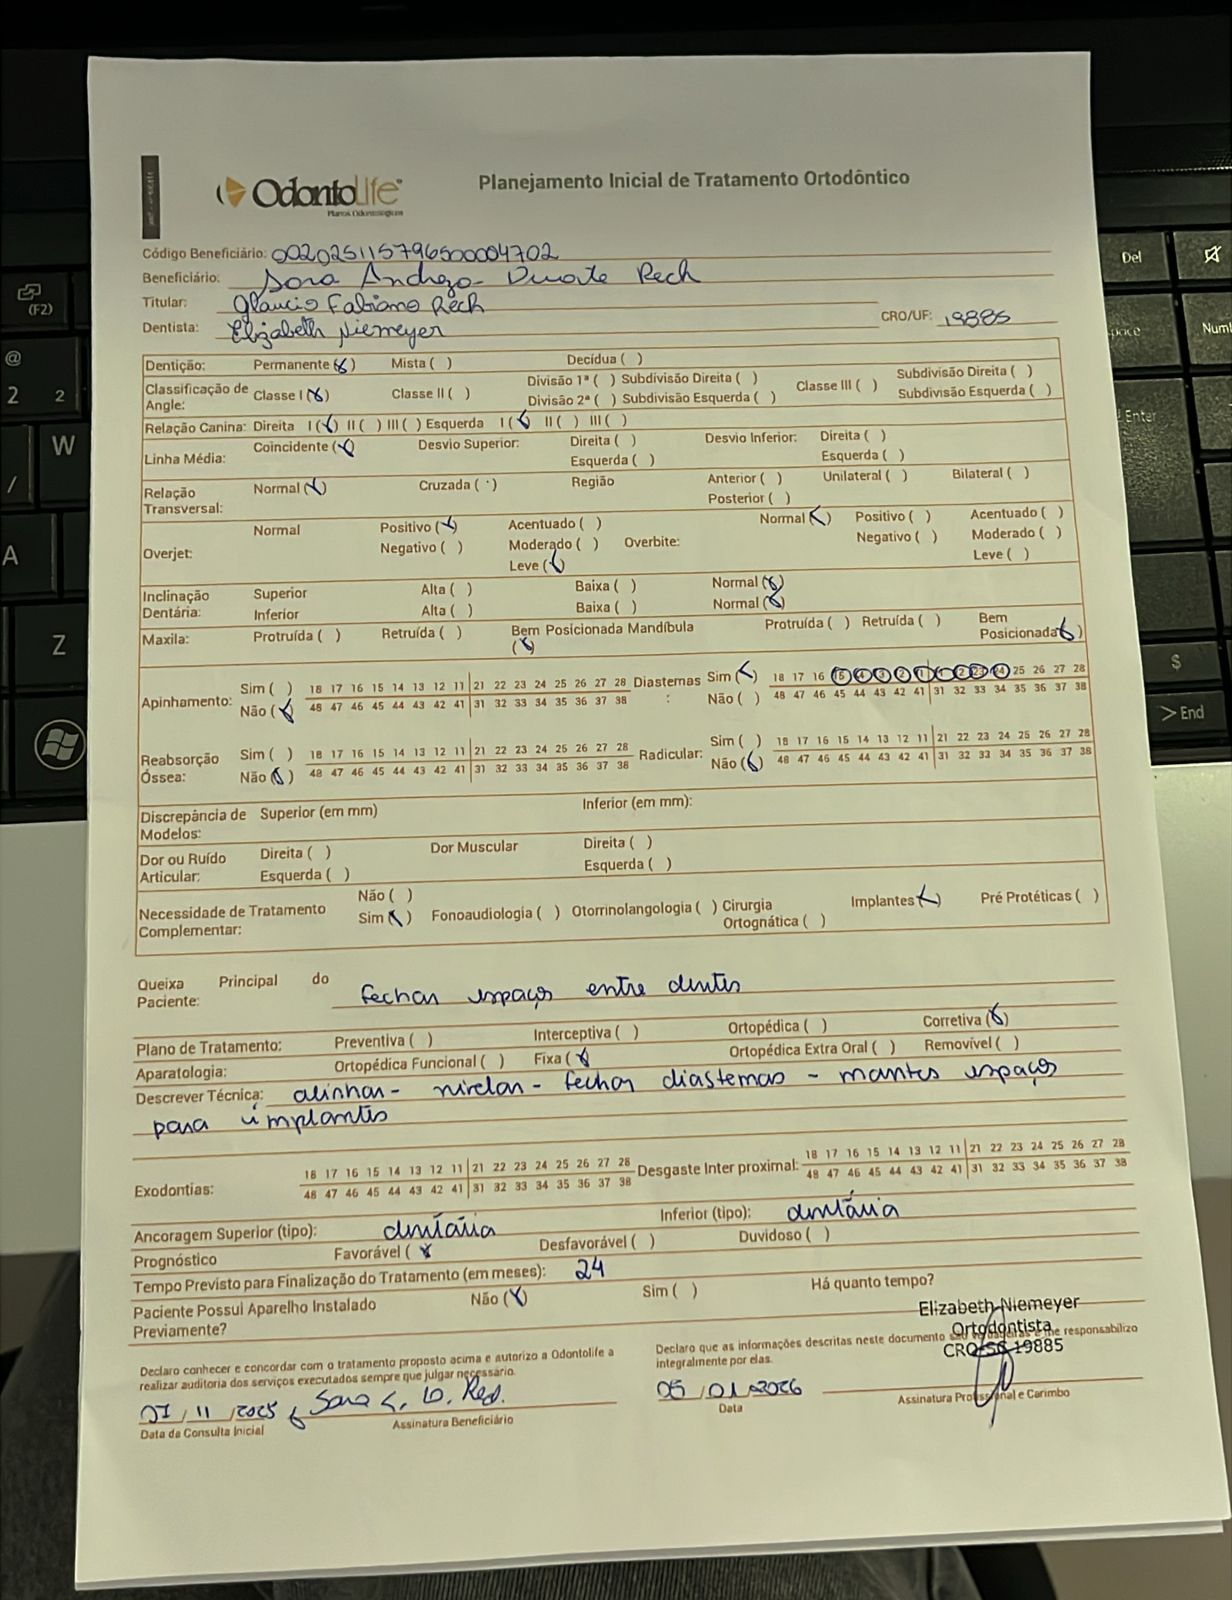 OdontoLife
Planos Odontológicos
Planejamento Inicial de Tratamento Ortodôntico
Código Beneficiário: 002025115796500004702
Beneficiário: Sara Andreza Duarte Rech
Titular: Glaucio Fabiano Rech
Dentista: Elizabeth Niemeyer CRO/UF: 19885
Dentição: Permanente (x) Mista ( ) Decídua ( )
Classificação de Angle: Classe I (x) Classe II ( ) Divisão 1ª ( ) Subdivisão Direita ( ) Divisão 2ª ( ) Subdivisão Esquerda ( ) Classe III ( ) Subdivisão Direita ( ) Subdivisão Esquerda ( )
Relação Canina: Direita I (x) II ( ) III ( ) Esquerda I (x) II ( ) III ( )
Linha Média: Coincidente (x) Desvio Superior: Direita ( ) Esquerda ( ) Desvio Inferior: Direita ( ) Esquerda ( )
Relação Transversal: Normal (x) Cruzada ( ) Região Anterior ( ) Posterior ( ) Unilateral ( ) Bilateral ( )
Overjet: Normal Positivo (x) Negativo ( ) Acentuado ( ) Moderado ( ) Leve (x) Overbite: Normal (x) Positivo ( ) Negativo ( ) Acentuado ( ) Moderado ( ) Leve ( )
Inclinação Dentária: Superior Alta ( ) Baixa ( ) Normal (x)
Inferior Alta ( ) Baixa ( ) Normal (x)
Maxila: Protruída ( ) Retruída ( ) Bem Posicionada (x) Mandíbula Protruída ( ) Retruída ( ) Bem Posicionada (x)
Apinhamento: Sim ( ) 18 17 16 15 14 13 12 11 21 22 23 24 25 26 27 28 Diastemas: Sim (x) 18 17 16 15 14 13 12 11 21 22 23 24 25 26 27 28
Não (x) 48 47 46 45 44 43 42 41 31 32 33 34 35 36 37 38 Não ( ) 48 47 46 45 44 43 42 41 31 32 33 34 35 36 37 38
Reabsorção Óssea: Sim ( ) 18 17 16 15 14 13 12 11 21 22 23 24 25 26 27 28 Radicular: Sim ( ) 18 17 16 15 14 13 12 11 21 22 23 24 25 26 27 28
Não (x) 48 47 46 45 44 43 42 41 31 32 33 34 35 36 37 38 Não (x) 48 47 46 45 44 43 42 41 31 32 33 34 35 36 37 38
Discrepância de Modelos: Superior (em mm) Inferior (em mm):
Dor ou Ruído Articular: Direita ( ) Esquerda ( ) Dor Muscular Direita ( ) Esquerda ( )
Necessidade de Tratamento Complementar: Não ( ) Sim (x) Fonoaudiologia ( ) Otorrinolangologia ( ) Cirurgia Ortognática ( ) Implantes (x) Pré Protéticas ( )
Queixa Principal do Paciente: fechar espaços entre dentes
Plano de Tratamento: Preventiva ( ) Interceptiva ( ) Ortopédica ( ) Corretiva (x)
Aparatologia: Ortopédica Funcional ( ) Fixa (x) Ortopédica Extra Oral ( ) Removível ( )
Descrever Técnica: alinhar - nivelar - fechar diastemas - manter espaços
para implantes
Exodontias: 18 17 16 15 14 13 12 11 21 22 23 24 25 26 27 28 Desgaste Inter proximal: 18 17 16 15 14 13 12 11 21 22 23 24 25 26 27 28
48 47 46 45 44 43 42 41 31 32 33 34 35 36 37 38 48 47 46 45 44 43 42 41 31 32 33 34 35 36 37 38
Ancoragem Superior (tipo): dentária Inferior (tipo): dentária
Prognóstico Favorável (x) Desfavorável ( ) Duvidoso ( )
Tempo Previsto para Finalização do Tratamento (em meses): 24
Paciente Possui Aparelho Instalado Previamente? Não (x) Sim ( ) Há quanto tempo?
Elizabeth Niemeyer
Ortodontista
CRO-SC 19885
Declaro conhecer e concordar com o tratamento proposto acima e autorizo a Odontolife a
realizar auditoria dos serviços executados sempre que julgar necessário.
Declaro que as informações descritas neste documento são verdadeiras e me responsabilizo
integralmente por elas.
/ 11 / 2025
Data da Consulta Inicial Assinatura Beneficiário
05 / 01 / 2026
Data Assinatura Profissional e Carimbo
(F2)
@
2 2
W
/
A
Z
Del
Num
Enter
$
> End